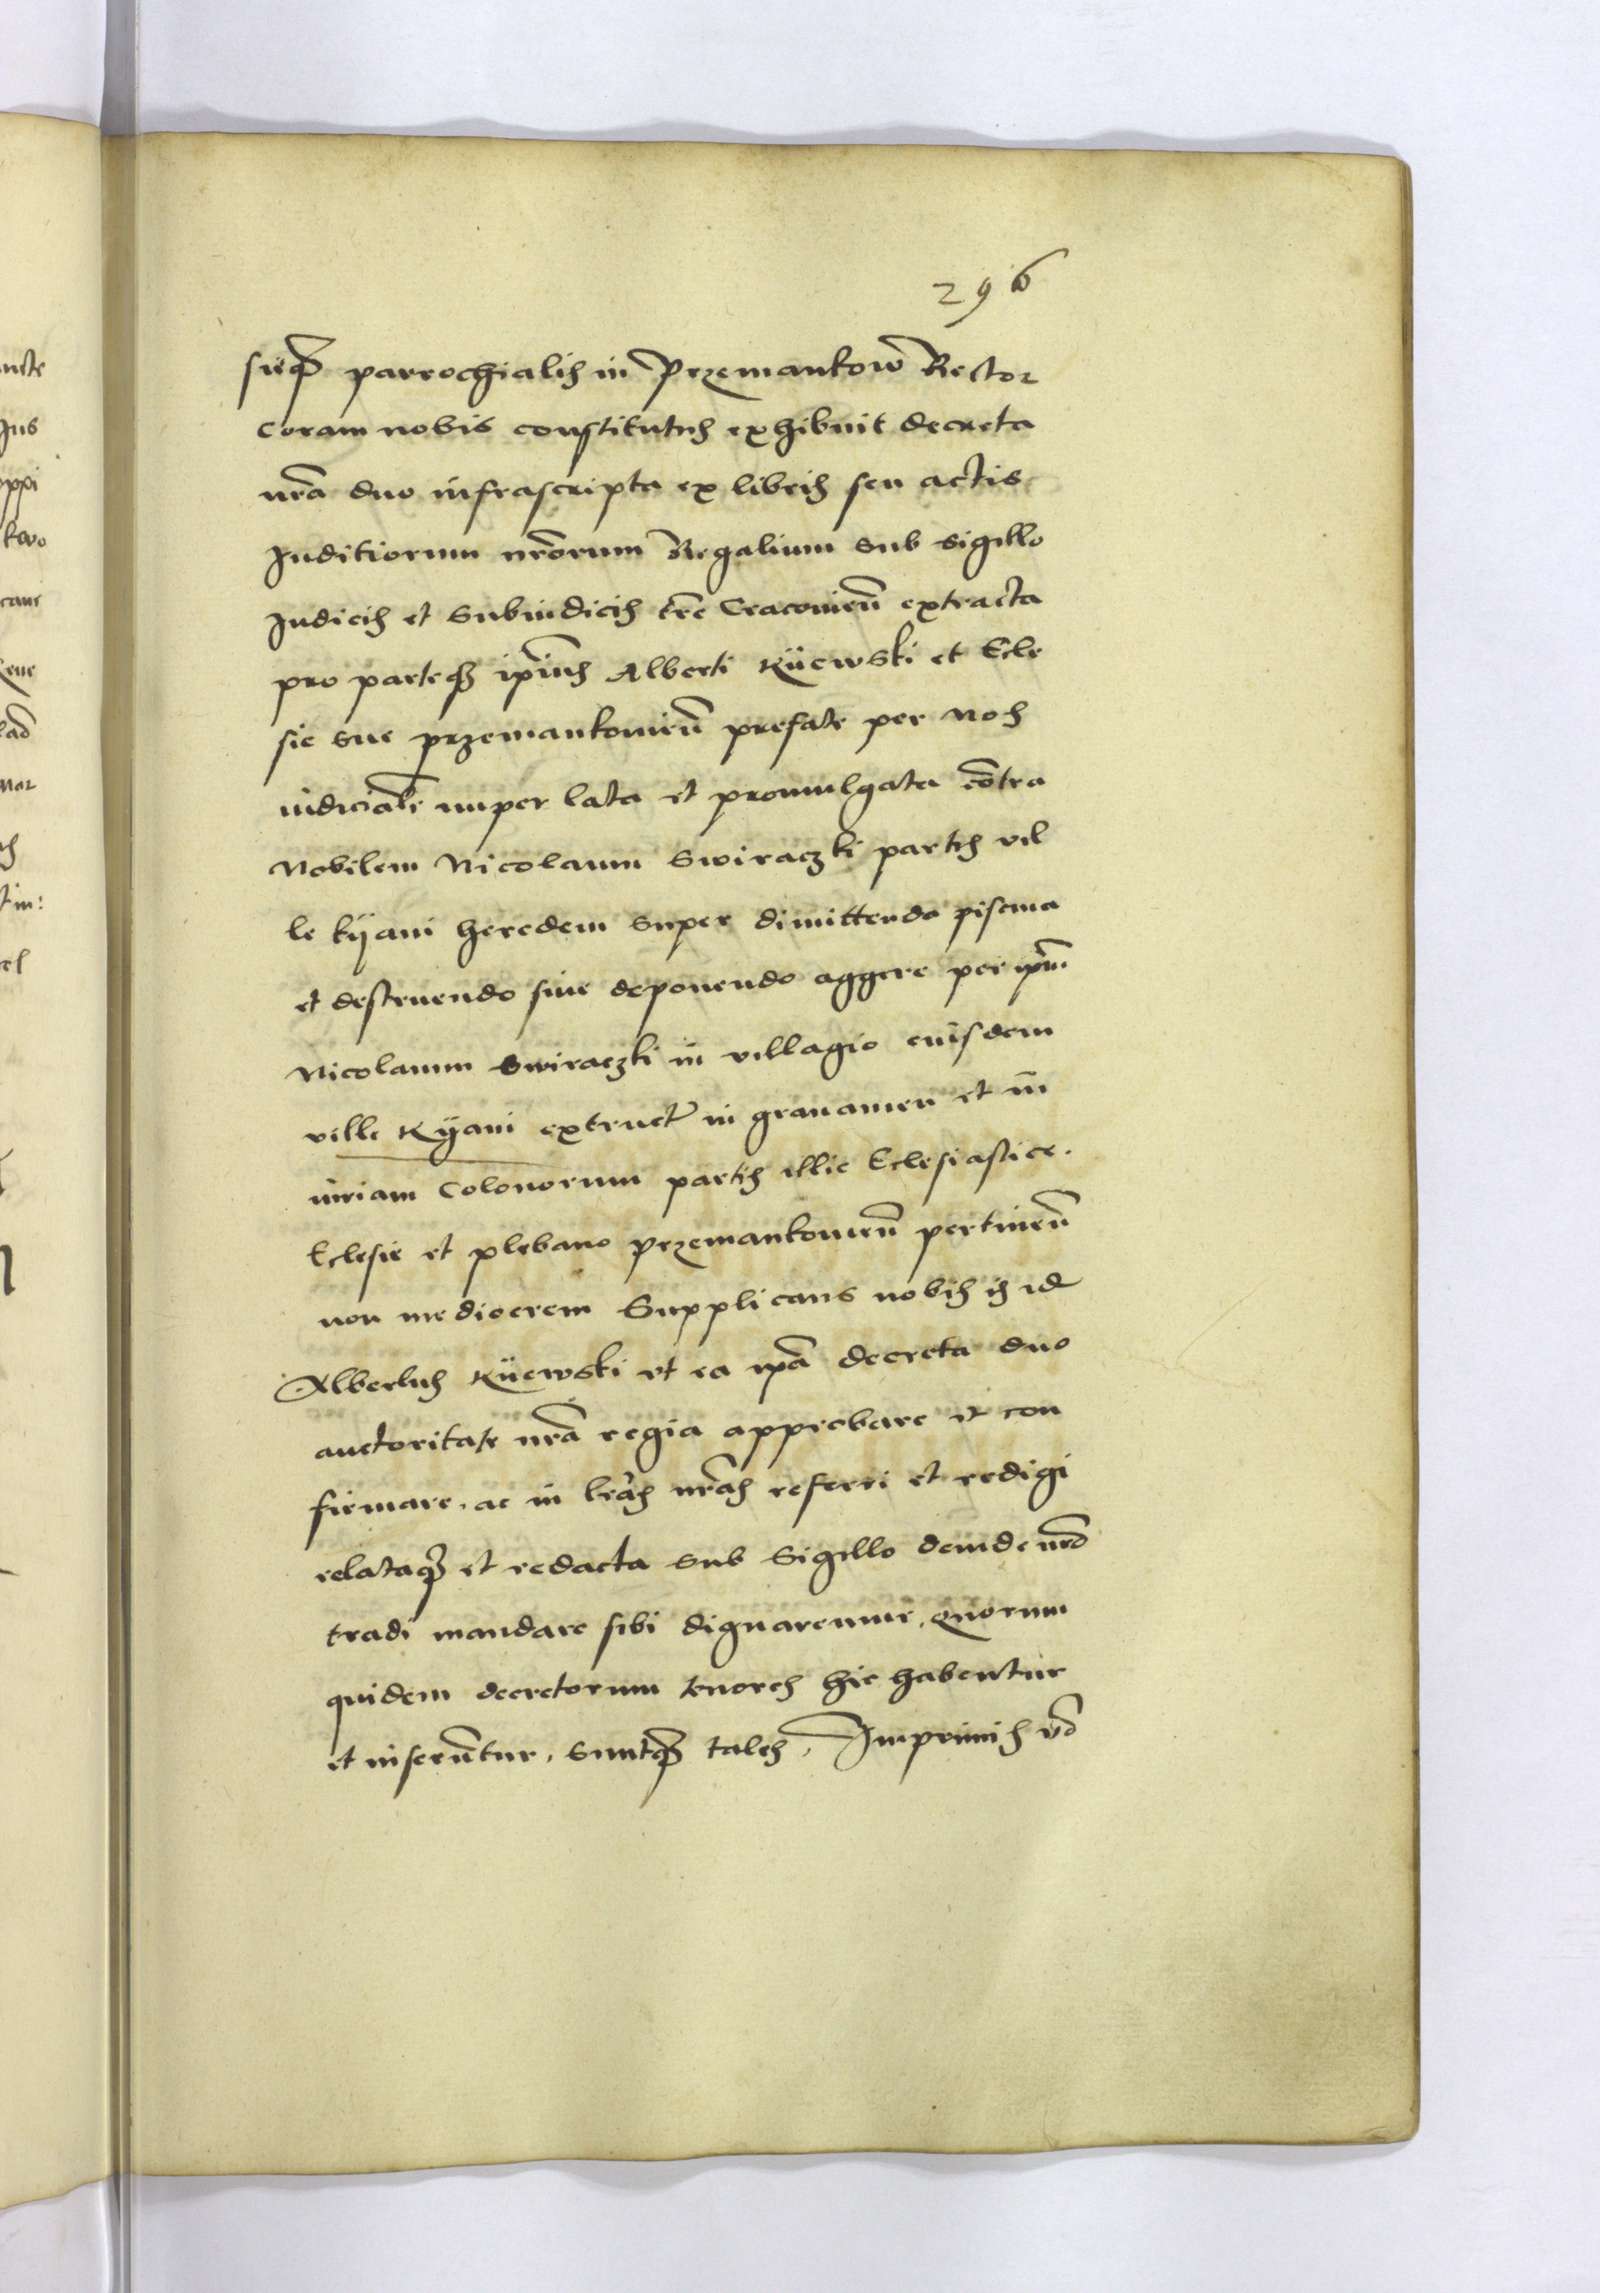 296
sieq̃ parrochialis in Przemankow Rector
coram nobis constitutus exhibuit decreta
nr̃a duo infrascripta ex libris seu actis
Juditiorum nr̃orum Regalium sub sigillo
Judicis et Subiudicis tr̃e Cracovien̄ extracta
pro parteq̃ ip̃ius Alberti Kÿewski et Ecle
sie sue przemankovien̄ prefate per nos
iudicial̃r nuper lata et promulgata cõtra
Nobilem Nicolaum Swiraczki partis vil
le kÿani heredem super dimittenda piscina
et destruendo sive deponendo aggere per ip̃m
Nicolaum Swiraczki in villagio eiusdem
ville Kÿani extruct̃ in gravamen et in̄
iuriam Colonorum partis illic Eclesiastice.
Eclesie et plebano przemankovien̄ pertinen̄
non mediocrem Supplicans nobis is id̃
Albertus Kÿewski vt ea ip̃a decreta duo
auctoritate nr̃a regia approbare et con
firmare. ac in lr̃as nr̃as referri et redigi
relataq̃ et redacta sub Sigillo deinde nr̃o
tradi mandare sibi dignaremur, quorum
quidem decretorum tenores hic habentur
et inserũtur, suntq̃ tales, Inprimis v̄o